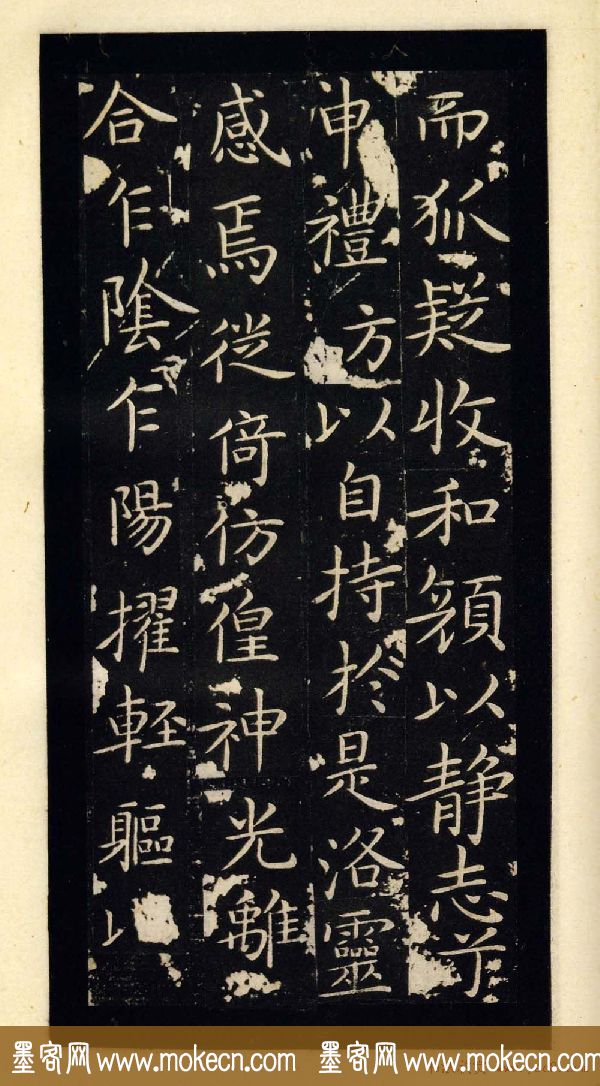 而狐疑收和顏以静志兮
申禮方以自持於是洛靈
感焉徙倚仿偟神光離
合乍隂乍陽擢輕軀以
墨客网 www.mokecn.com 墨客网 www.mokecn.com